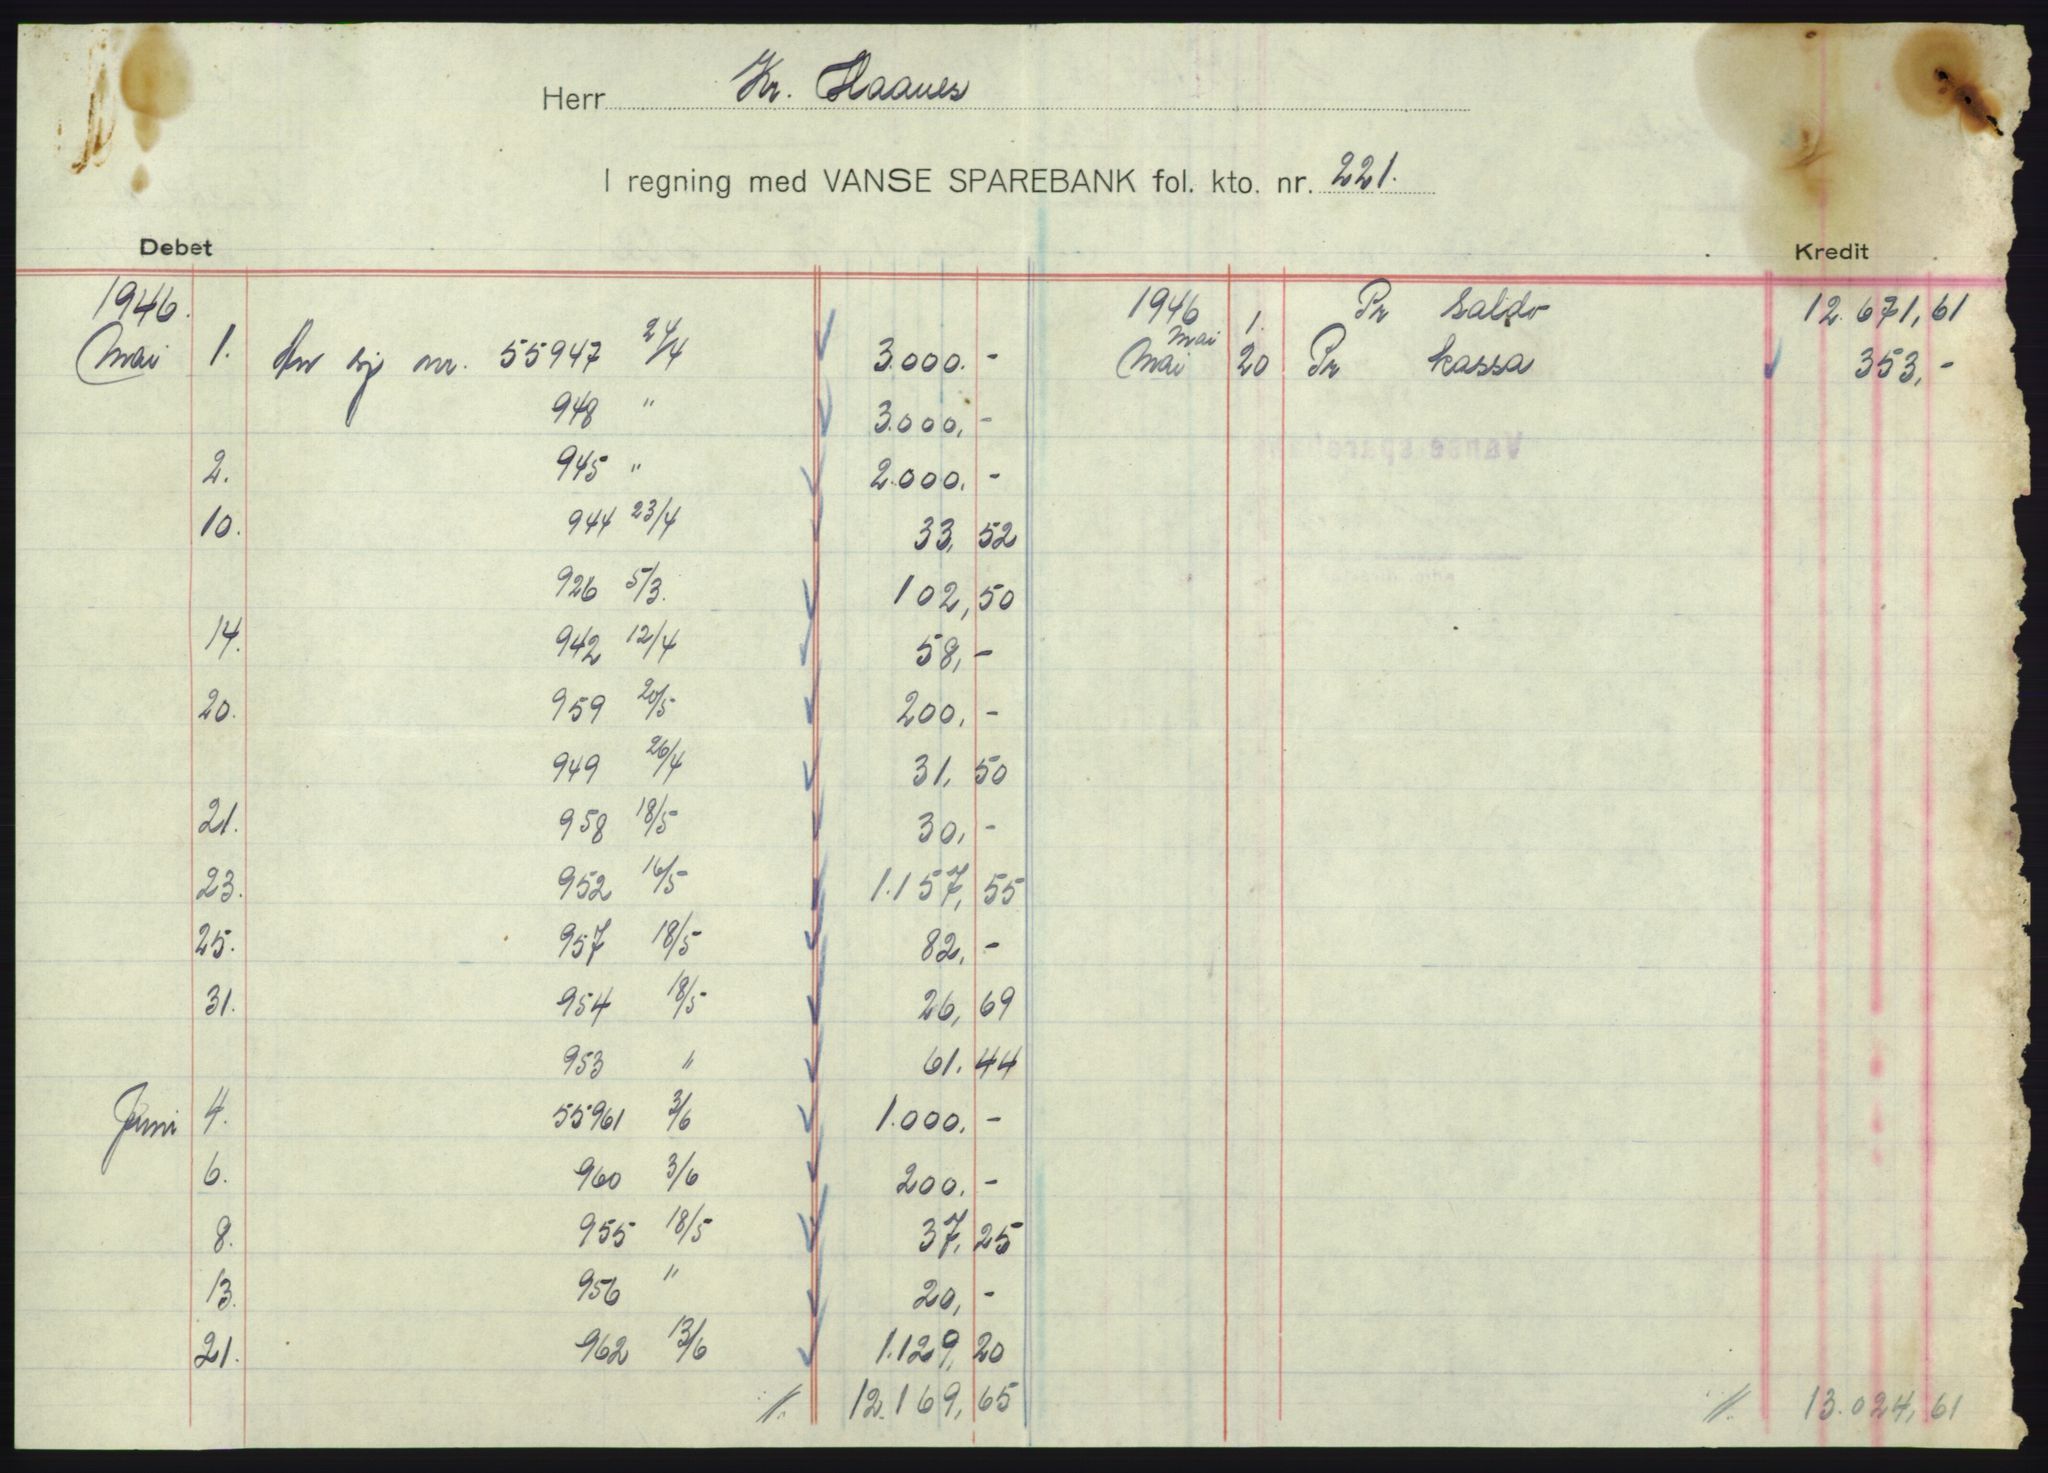 Herr Kr. Haanes
I regning med VANSE SPAREBANK fol. kto. nr. 221.
Debet Kredit
1946. 1946 Mai 1. Pr saldo 12.671,61
Mai 1. nr. 55947 24/4 3.000.- Mai 20 Pr kassa 353,-
948 " 3.000,-
2. 945 " 2.000.-
10. 944 23/4 33,52
926 5/3. 102,50
14. 942 12/4 58,-
20. 959 20/5 200,-
949 26/4 31,50
21. 958 18/5 30,-
23. 952 16/5 1.157,55
25. 957 18/5 82,-
31. 954 18/5 26,69
953 " 61.44
Juni 4. 55961 3/6 1.000.-
6. 960 3/6 200.-
8. 955 18/5 37,25
13. 956 " 20,-
21. 962 13/6 1.129,20
12.169,65 13.024,61